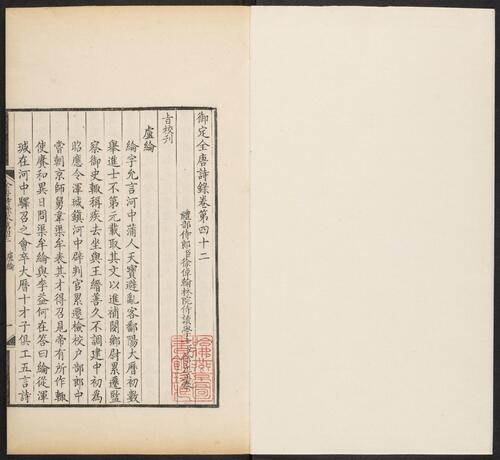 御定全唐詩錄卷第四十二
禮部侍郎臣徐倬翰林院侍讀學士
旨校刊
盧綸
綸字允言河中蒲人天寶避亂客鄱陽大曆初數
舉進士不第元載取其文以進補閿鄉尉累遷監
察御史輒稱疾去坐與王縉善久不調建中初為
昭應令渾瑊鎮河中辟判官累遷檢校户部郎中
嘗朝京師舅韋渠牟表其才得召見帝有所作輒
使賡和異日問渠牟綸與李益何在答曰綸從渾
瑊在河中驛召之會卒大曆十才子俱工五言詩
盧綸
一